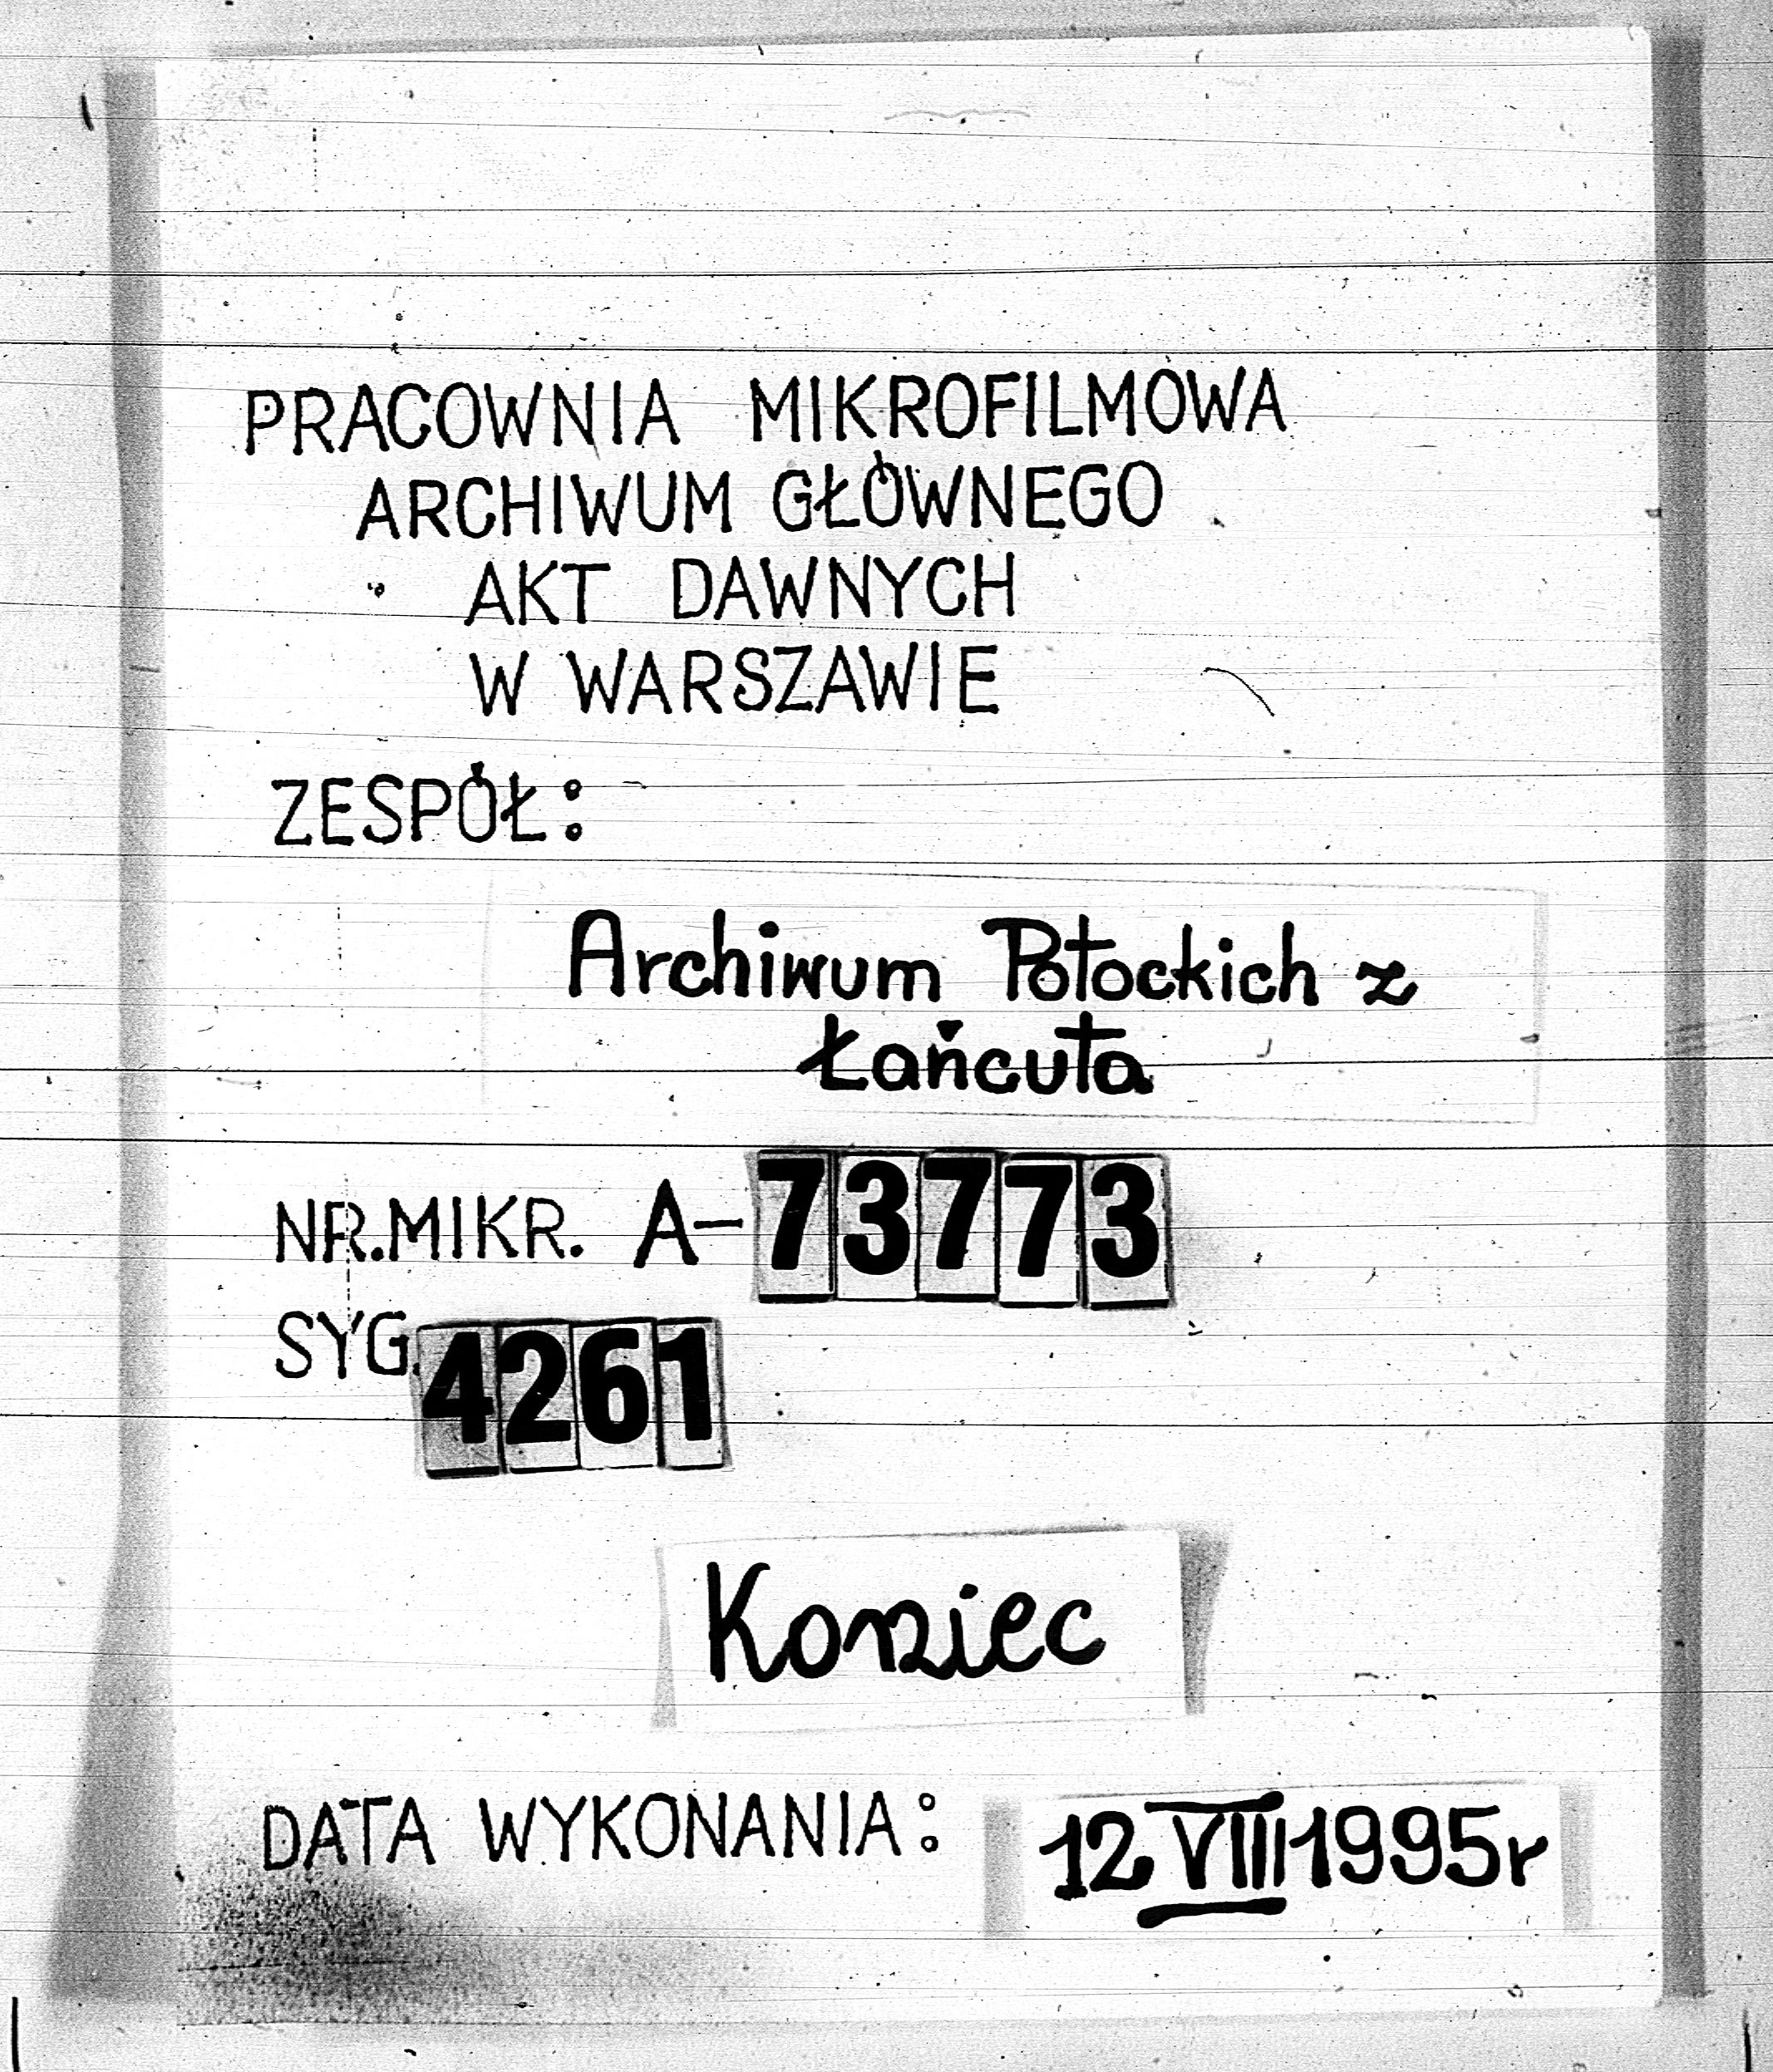 PRACOWNIA MIKROFILMOWA
ARCHIWUM GŁÓWNEGO
AKT DAWNYCH
W WARSZAWIE
ZESPÓŁ:
Archiwum Potockich z
Łańcuta
NR.MIKR. A-73773
SYG. 4261
Koniec
DATA WYKONANIA: 12 VIII 1995r